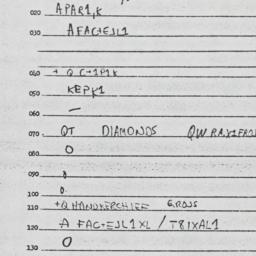 020 APAR1,K
030 AFAC+EJL1
040 + Q C+1P1K
050 KEPK1
060 —
070. QT DIAMONDS QW
080. O
090.
100 0.
110 +Q HANDKERCHIEF G.ROJS
120 A FAC-EJL1XL / T81XAL1
130 O